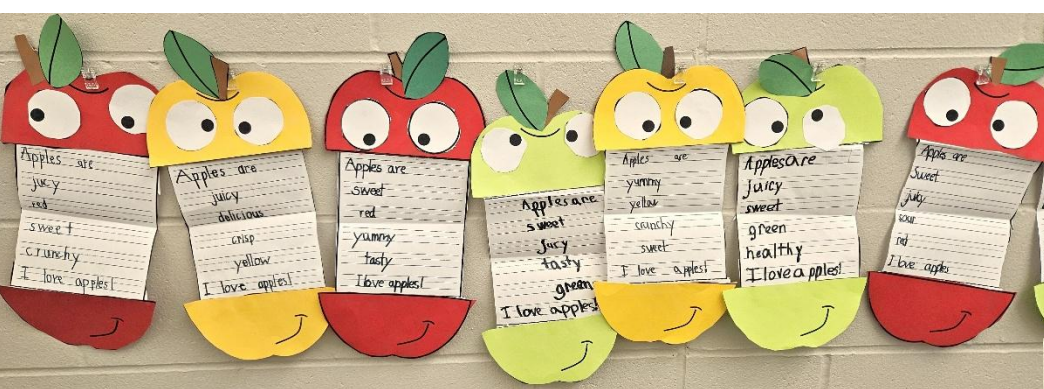 Apples are
jucy
red
sweet
crunchy
I love apples!
Apples are
juicy
delicious
crisp
yellow
I love apples!
Apples are
sweet
red
yummy
tasty
I love apples!
Apples are
sweet
jucy
tasty
green
I love apples!
Apples are
yummy
yellow
crunchy
sweet
I love apples!
Apples are
juicy
sweet
green
healthy
I love apples!
Apples are
Sweet
juicy
sour
red
I love apples